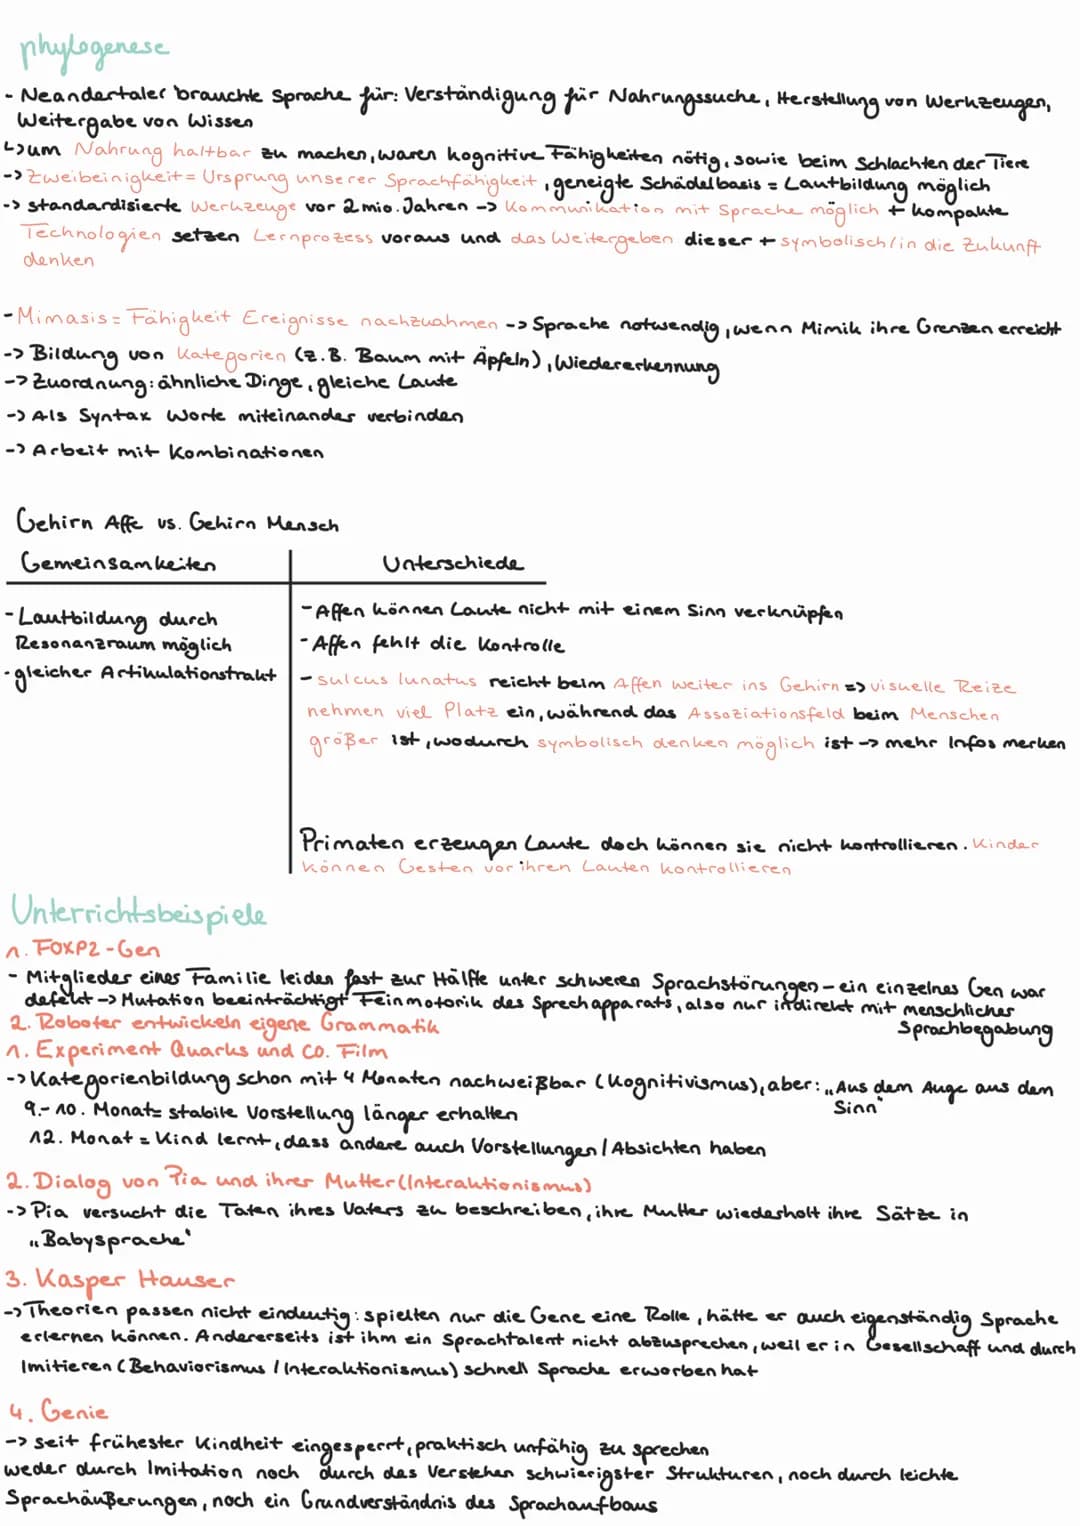 phylogenese
- Neandertaler brauchte Sprache für: Verständigung für Nahrungssuche, Herstellung von Werkzeugen,
Weitergabe von Wissen
↳um Nahrung haltbar zu machen, waren kognitive Fähigkeiten nötig, sowie beim Schlachten der Tiere
-> Zweibeinigkeit = Ursprung unserer Sprachfähigkeit, geneigte Schädelbasis = Lautbildung möglich
-> standardisierte Werkzeuge vor 2 mio. Jahren -> Kommunikation mit Sprache möglich + kompakte
Technologien setzen Lernprozess voraus und das Weitergeben dieser + symbolisch/in die Zukunft
denken
- Mimasis = Fähigkeit Ereignisse nachzuahmen -> Sprache notwendig, wenn Mimik ihre Grenzen erreicht
-> Bildung von Kategorien (z.B. Baum mit Äpfeln), Wiedererkennung
-> Zuordnung: ähnliche Dinge, gleiche Laute
-> Als Syntax Worte miteinander verbinden
-> Arbeit mit Kombinationen
Gehirn Affe vs. Gehirn Mensch
Gemeinsamkeiten
- Lautbildung durch
Resonanzraum möglich
- gleicher Artikulationstrakt
Unterschiede
- Affen können Laute nicht mit einem Sinn verknüpfen
- Affen fehlt die Kontrolle
- sulcus lunatus reicht beim Affen weiter ins Gehirn => visuelle Reize
nehmen viel Platz ein, während das Assoziationsfeld beim Menschen
größer ist, wodurch symbolisch denken möglich ist -> mehr Infos merken
Primaten erzeugen Laute doch können sie nicht kontrollieren. Kinder
können Gesten vor ihren Lauten kontrollieren
Unterrichtsbeispiele
1. FOXP2-Gen
- Mitglieder eines Familie leiden fast zur Hälfte unter schweren Sprachstörungen - ein einzelnes Gen war
defekt -> Mutation beeinträchtigt Feinmotorik des Sprechapparats, also nur indirekt mit menschlicher
Sprachbegabung
2. Roboter entwickeln eigene Grammatik
1. Experiment Quarks und co. Film
-> Kategorienbildung schon mit 4 Monaten nachweißbar (Kognitivismus), aber: „Aus dem Auge aus dem
Sinn"
9.- 10. Monat = stabile Vorstellung länger erhalten
12. Monat = Kind lernt, dass andere auch Vorstellungen / Absichten haben
2. Dialog von Pia und ihrer Mutter (Interaktionismus)
-> Pia versucht die Taten ihres Vaters zu beschreiben, ihre Mutter wiederholt ihre Sätze in
„Babysprache"
3. Kasper Hauser
-> Theorien passen nicht eindeutig: spielten nur die Gene eine Rolle, hätte er auch eigenständig Sprache
erlernen können. Andererseits ist ihm ein Sprachtalent nicht abzusprechen, weil er in Gesellschaff und durch
Imitieren (Behaviorismus / Interaktionismus) schnell Sprache erworben hat
4. Genie
-> seit frühester Kindheit eingesperrt, praktisch unfähig zu sprechen
weder durch Imitation noch durch das Verstehen schwierigster Strukturen, noch durch leichte
Sprachäußerungen, noch ein Grundverständnis des Sprachaufbaus